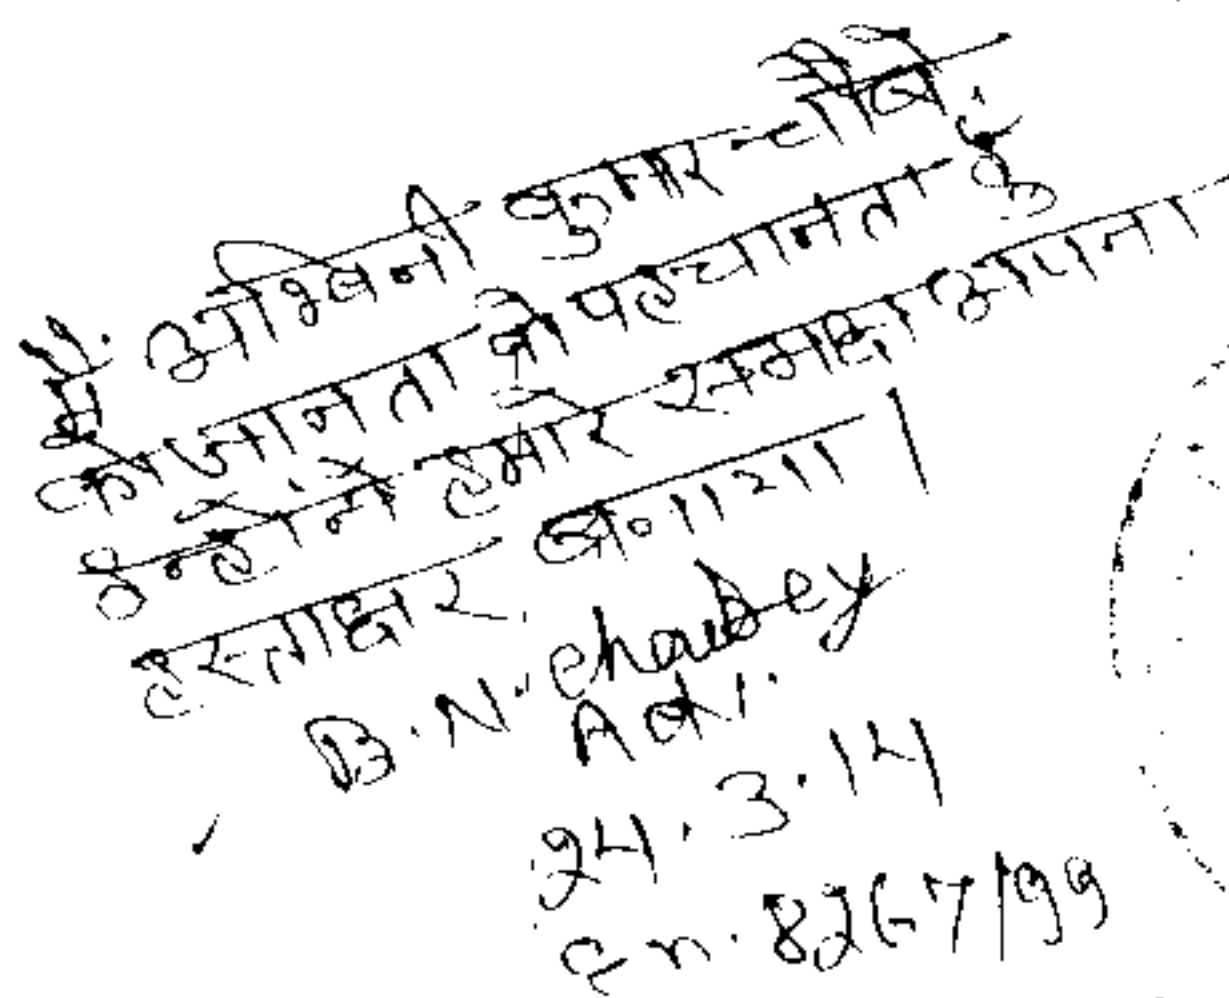 मैं अश्विनी कुमार चौबे
को जानता व पहचानता हूँ
उन्होंने हमारे समक्ष अपना
हस्ताक्षर बनाया।
B.N. Choubey
Adv.
24.3.14
En. 8267/99